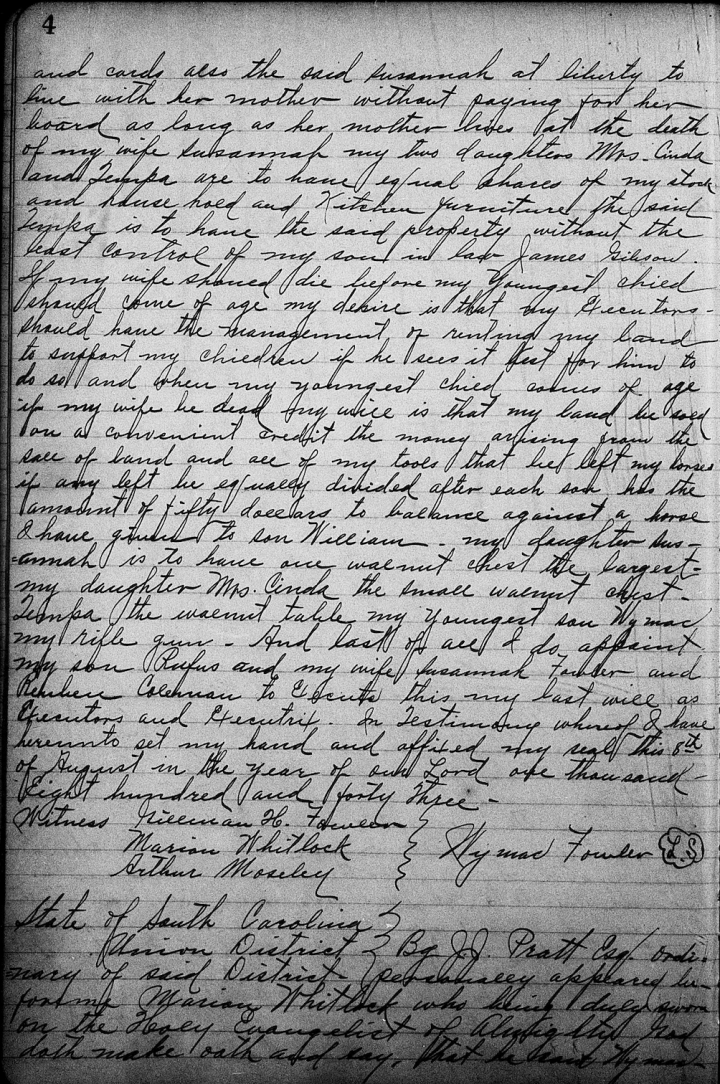 4
and cards also the said Susannah at liberty to
live with her mother without paying for her
board as long as her mother lives at the death
of my wife Susannah my two daughters Mrs. Cinda
and Tempa are to have equal shares of my stock
and house hold and Kitchen furniture the said
Tempa is to have the said property without the
least control of my son in law James Gibson.
If my wife should die before my Youngest child
should come of age my desire is that my Executors-
should have the management of renting my land
to support my children if he sees it best for him to
do so and when my youngest child comes of age
if my wife be dead my will is that my land be sold
on a convenient credit the money arising from the
sale of land and all of my tools that be left my horses
if any left be equally divided after each son has the
amount of fifty dollars to ballance against a horse
I have given to son William - my daughter Sus-
annah is to have one walnut chest the largest-
my daughter Mrs. Cinda the small walnut chest-
Tempa the walnut table my Youngest son Wymac
my rifle gun - And last of all I do appoint
my son Rufus and my wife Susannah Fowler and
Reuben Coleman to Execute this my last will as
Executors and Executrix. In Testimony whereof I have
hereunto set my hand and affixed my seal this 8th
of August in the year of our Lord one thousand-
Eight hundred and forty three-
Witness Tillman H. Fowler
Marion Whitlock } Wymac Fowler L.S
Arthur Moseley
State of South Carolina }
Union District } By J.J. Pratt Esq. ordi-
nary of said District- personally appeared be-
fore me Marion Whitlock who being duly sworn
on the Holy Evangelist of Almighty God
doth make oath and say, that he saw Wymac-